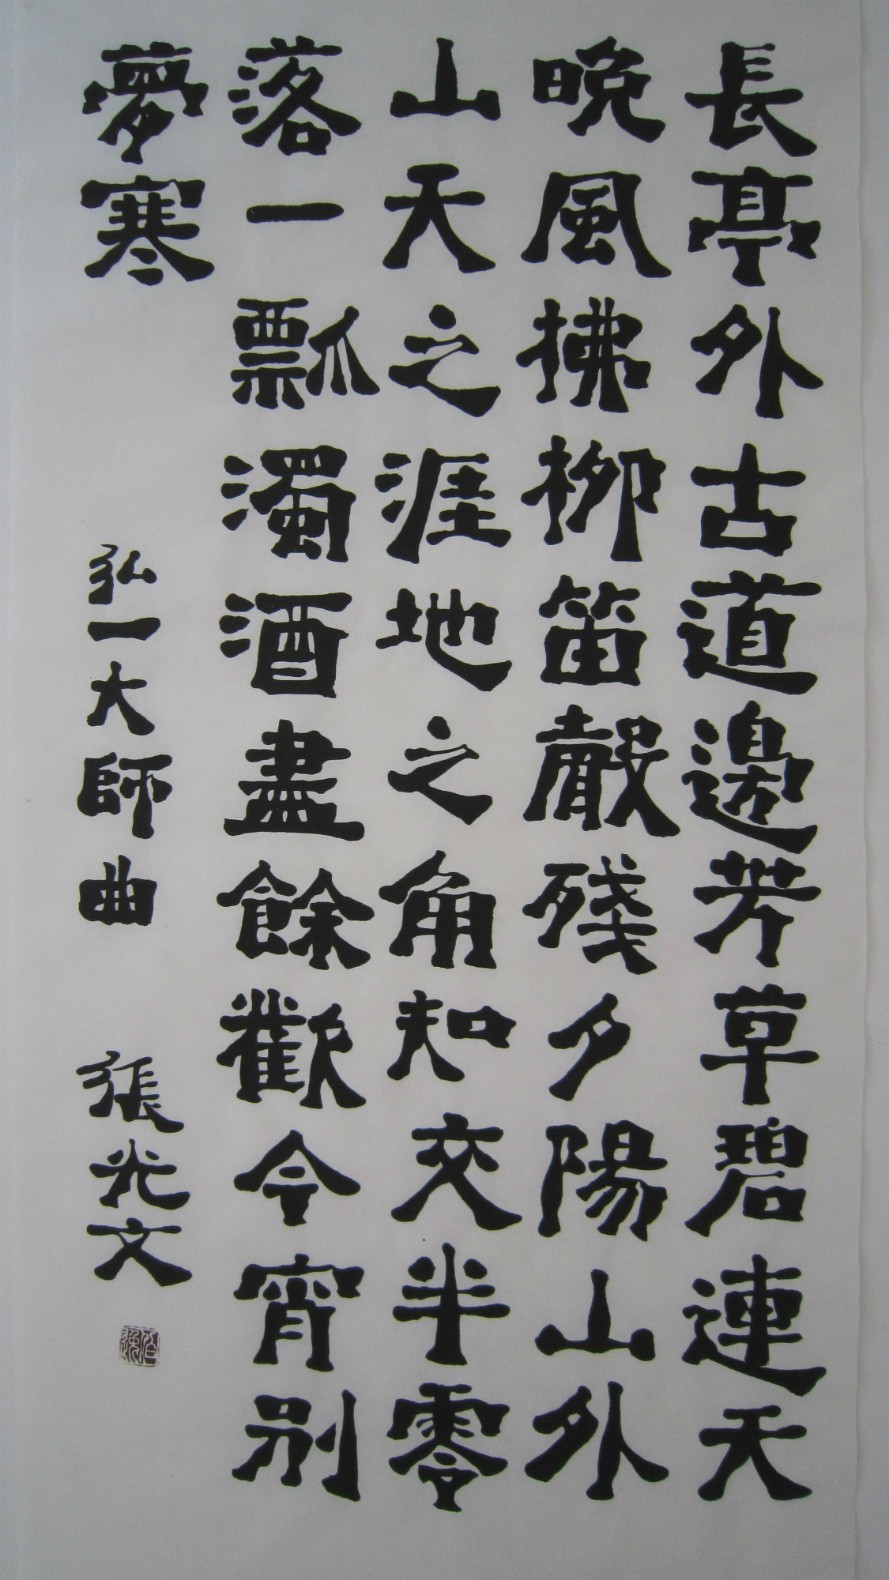 長亭外古道邊芳草碧連天
晚風拂柳笛聲殘夕陽山外
山天之涯地之角知交半零
落一瓢濁酒盡餘歡今宵別
夢寒
弘一大師曲
張光文